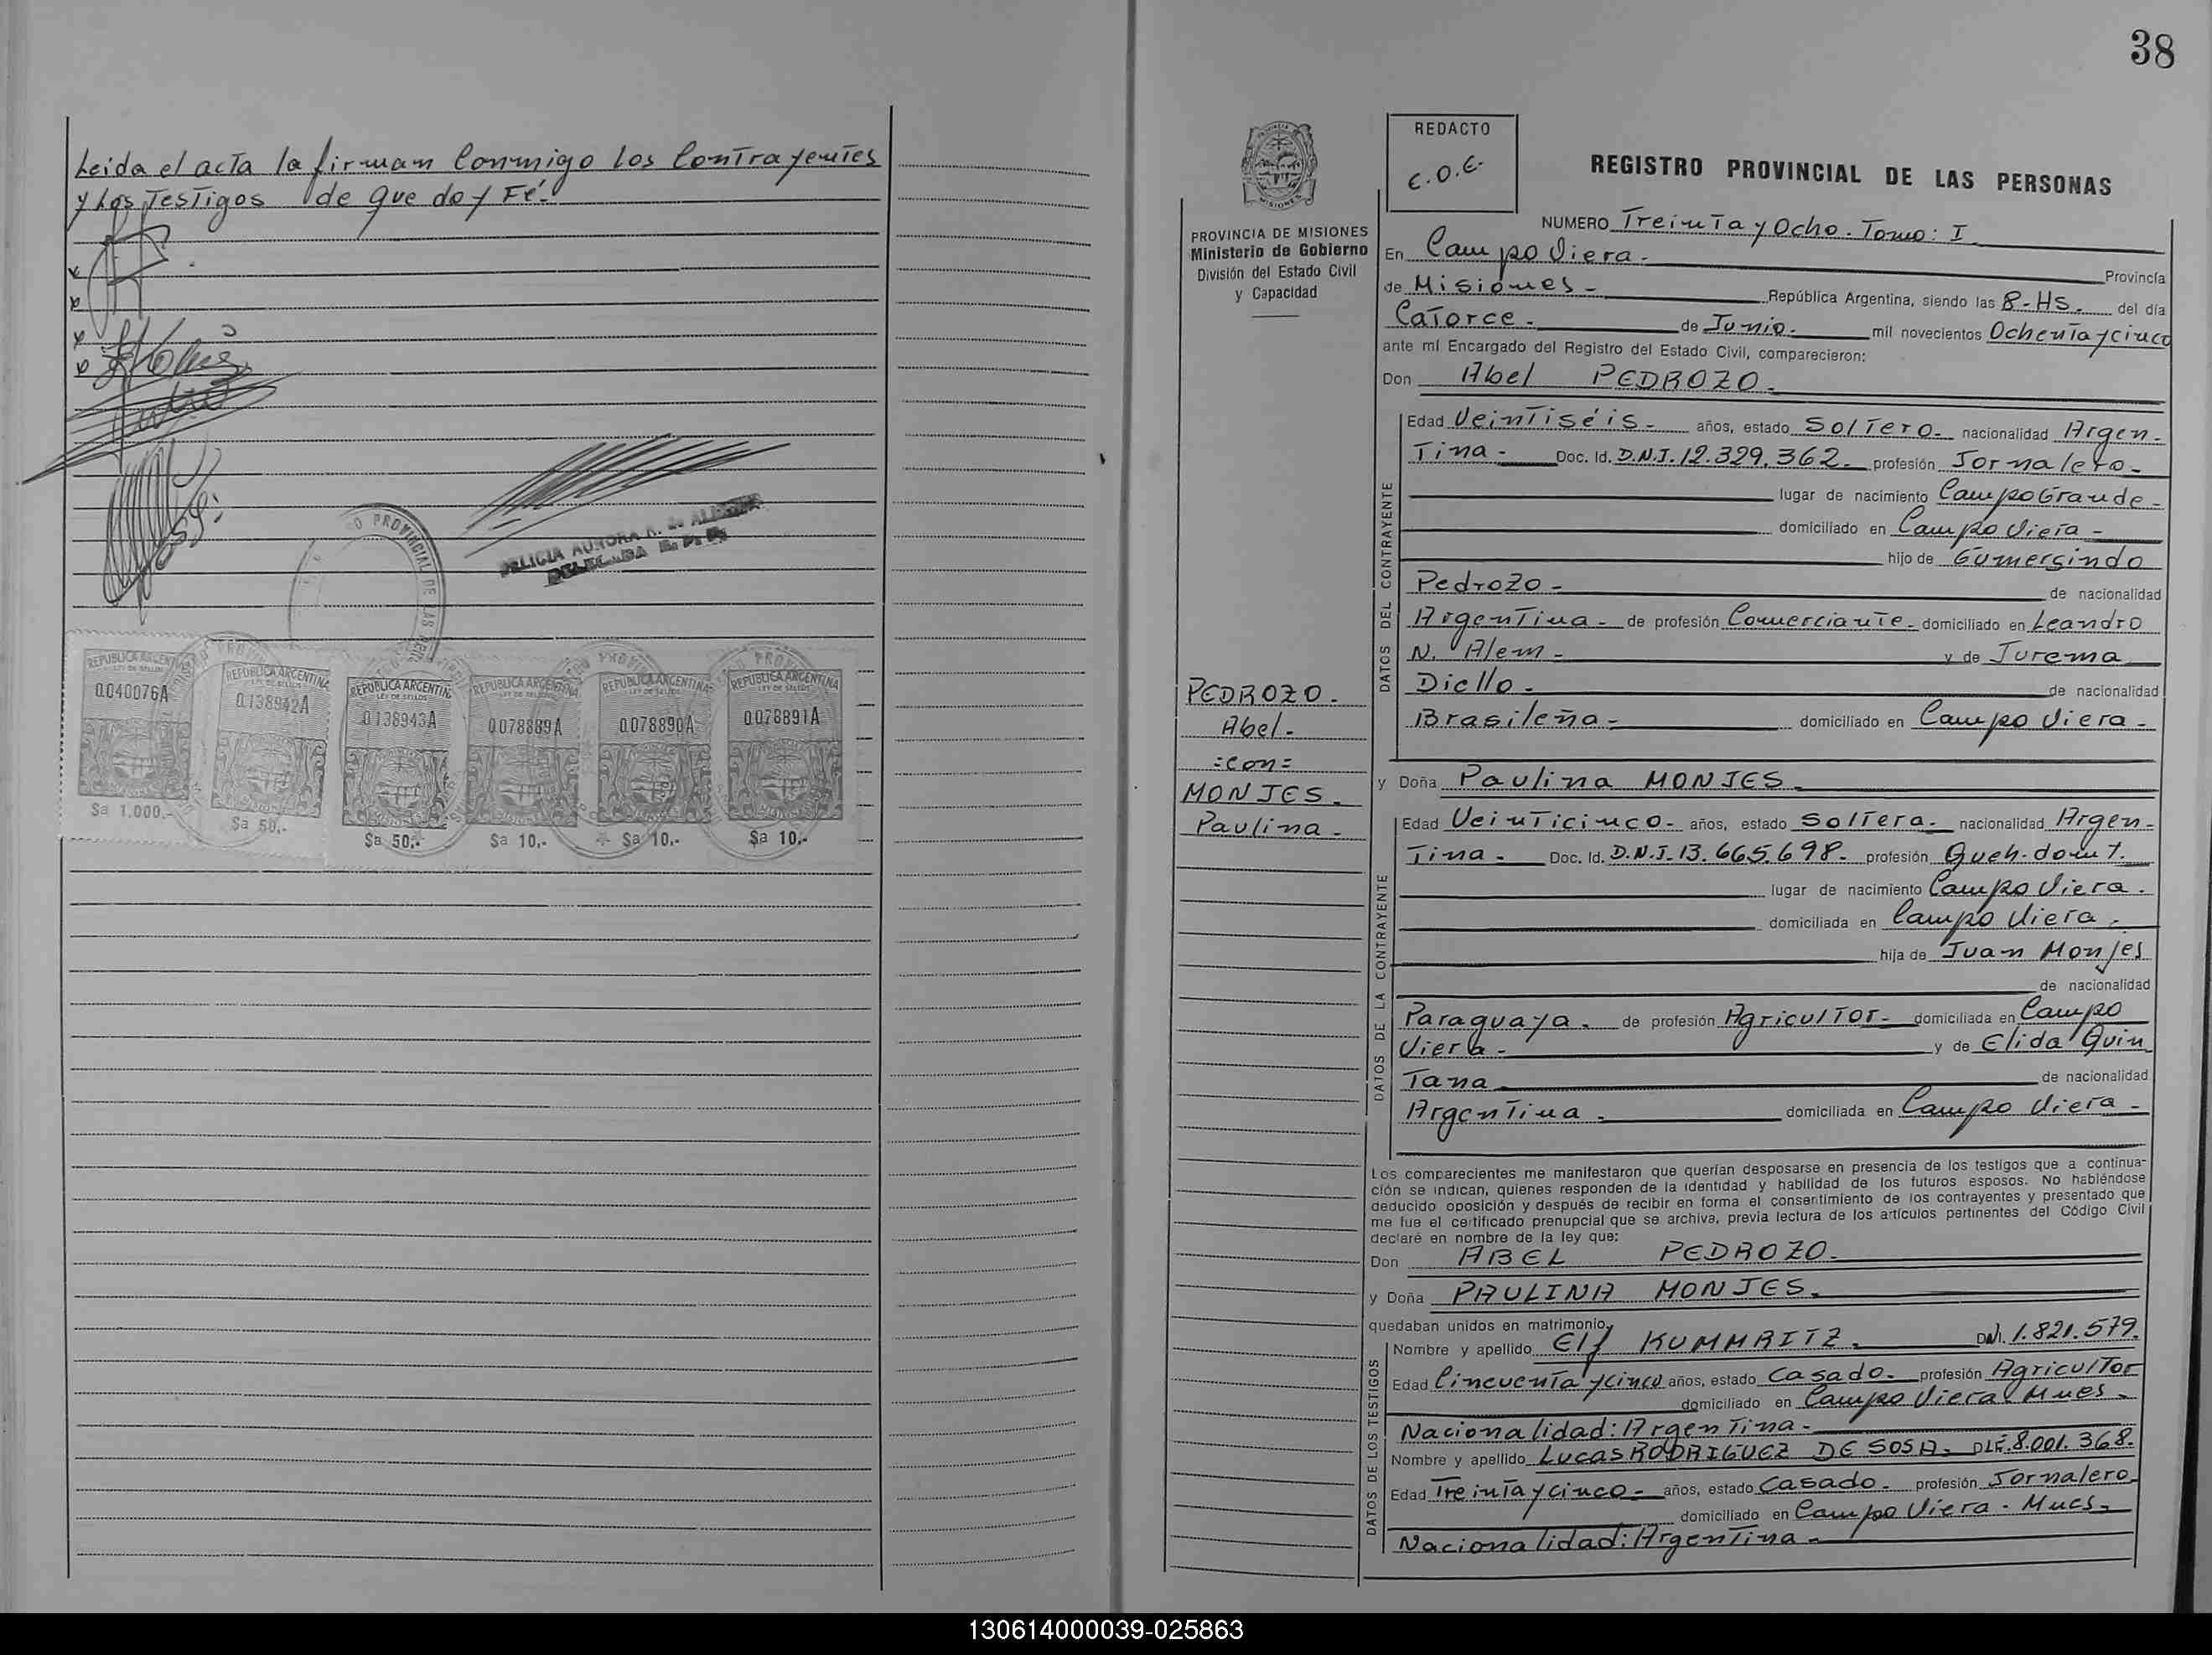 Leida el acta la firman Conmigo los Contrayentes
y Los Testigos de que doy Fé.-
PROVINCIAL DE LAS
DELICIA AURORA R. de
DELEGADA R. P. P.
REPUBLICA ARGENTINA
LEY DE SELLOS
0040076A
$a 1.000.-
REPUBLICA ARGENTINA
LEY DE SELLOS
0138942A
$a 50,-
REPUBLICA ARGENTINA
LEY DE SELLOS
0138943A
$a 50,-
REPUBLICA ARGENTINA
LEY DE SELLOS
0078889A
$a 10,-
REPUBLICA ARGENTINA
LEY DE SELLOS
0078890A
$a 10,-
REPUBLICA ARGENTINA
LEY DE SELLOS
0078891A
$a 10,-
38
PROVINCIA DE MISIONES
Ministerio de Gobierno
División del Estado Civil
y Capacidad
PEDROZO.-
Abel.-
=con=
MONJES.-
Paulina.-
REDACTO
C.O.E.-
REGISTRO PROVINCIAL DE LAS PERSONAS
NUMERO Treinta y Ocho. Tomo: I
En Campo Viera.- Provincia
de Misiones.- República Argentina, siendo las 8-HS.- del día
Catorce.- de Junio.- mil novecientos Ochenta y cinco
ante mí Encargado del Registro del Estado Civil, comparecieron:
Don Abel PEDROZO.-
DATOS DEL CONTRAYENTE
Edad Veintiséis.- años, estado Soltero.- nacionalidad Argen-
tina.- Doc. Id. D.N.I. 12.329.362.- profesión Jornalero.-
lugar de nacimiento Campo Grande.-
domiciliado en Campo Viera.-
hijo de Gumersindo
Pedrozo.- de nacionalidad
Argentina.- de profesión Comerciante.- domiciliado en Leandro
N. Alem.- y de Jurema
Diello.- de nacionalidad
Brasileña.- domiciliado en Campo Viera.-
y Doña Paulina MONJES.-
DATOS DE LA CONTRAYENTE
Edad Veinticinco.- años, estado Soltera.- nacionalidad Argen-
tina.- Doc. Id. D.N.I. 13.665.698.- profesión Queh. domt.
lugar de nacimiento Campo Viera.
domiciliada en Campo Viera.
hija de Juan Monjes
de nacionalidad
Paraguaya. de profesión Agricultor.- domiciliada en Campo
Viera.- y de Elida Quin
Tana de nacionalidad
Argentina.- domiciliada en Campo Viera.-
Los comparecientes me manifestaron que querían desposarse en presencia de los testigos que a continua-
ción se indican, quienes responden de la identidad y habilidad de los futuros esposos. No habiéndose
deducido oposición y después de recibir en forma el consentimiento de los contrayentes y presentado que
me fue el certificado prenupcial que se archiva, previa lectura de los artículos pertinentes del Código Civil
declaré en nombre de la ley que:
Don ABEL PEDROZO.-
y Doña PAULINA MONJES.-
quedaban unidos en matrimonio,
DATOS DE LOS TESTIGOS
Nombre y apellido Elf KUMMRITZ.- DNI. 1.821.579.
Edad Cincuenta y cinco años, estado Casado.- profesión Agricultor
domiciliado en Campo Viera Mnes.-
Nacionalidad: Argentina.-
Nombre y apellido Lucas RODRIGUEZ DE SOSA. DLE. 8.001.368.
Edad Treinta y cinco.- años, estado Casado.- profesión Jornalero.
domiciliado en Campo Viera. Mnes.
Nacionalidad: Argentina.-
130614000039-025863